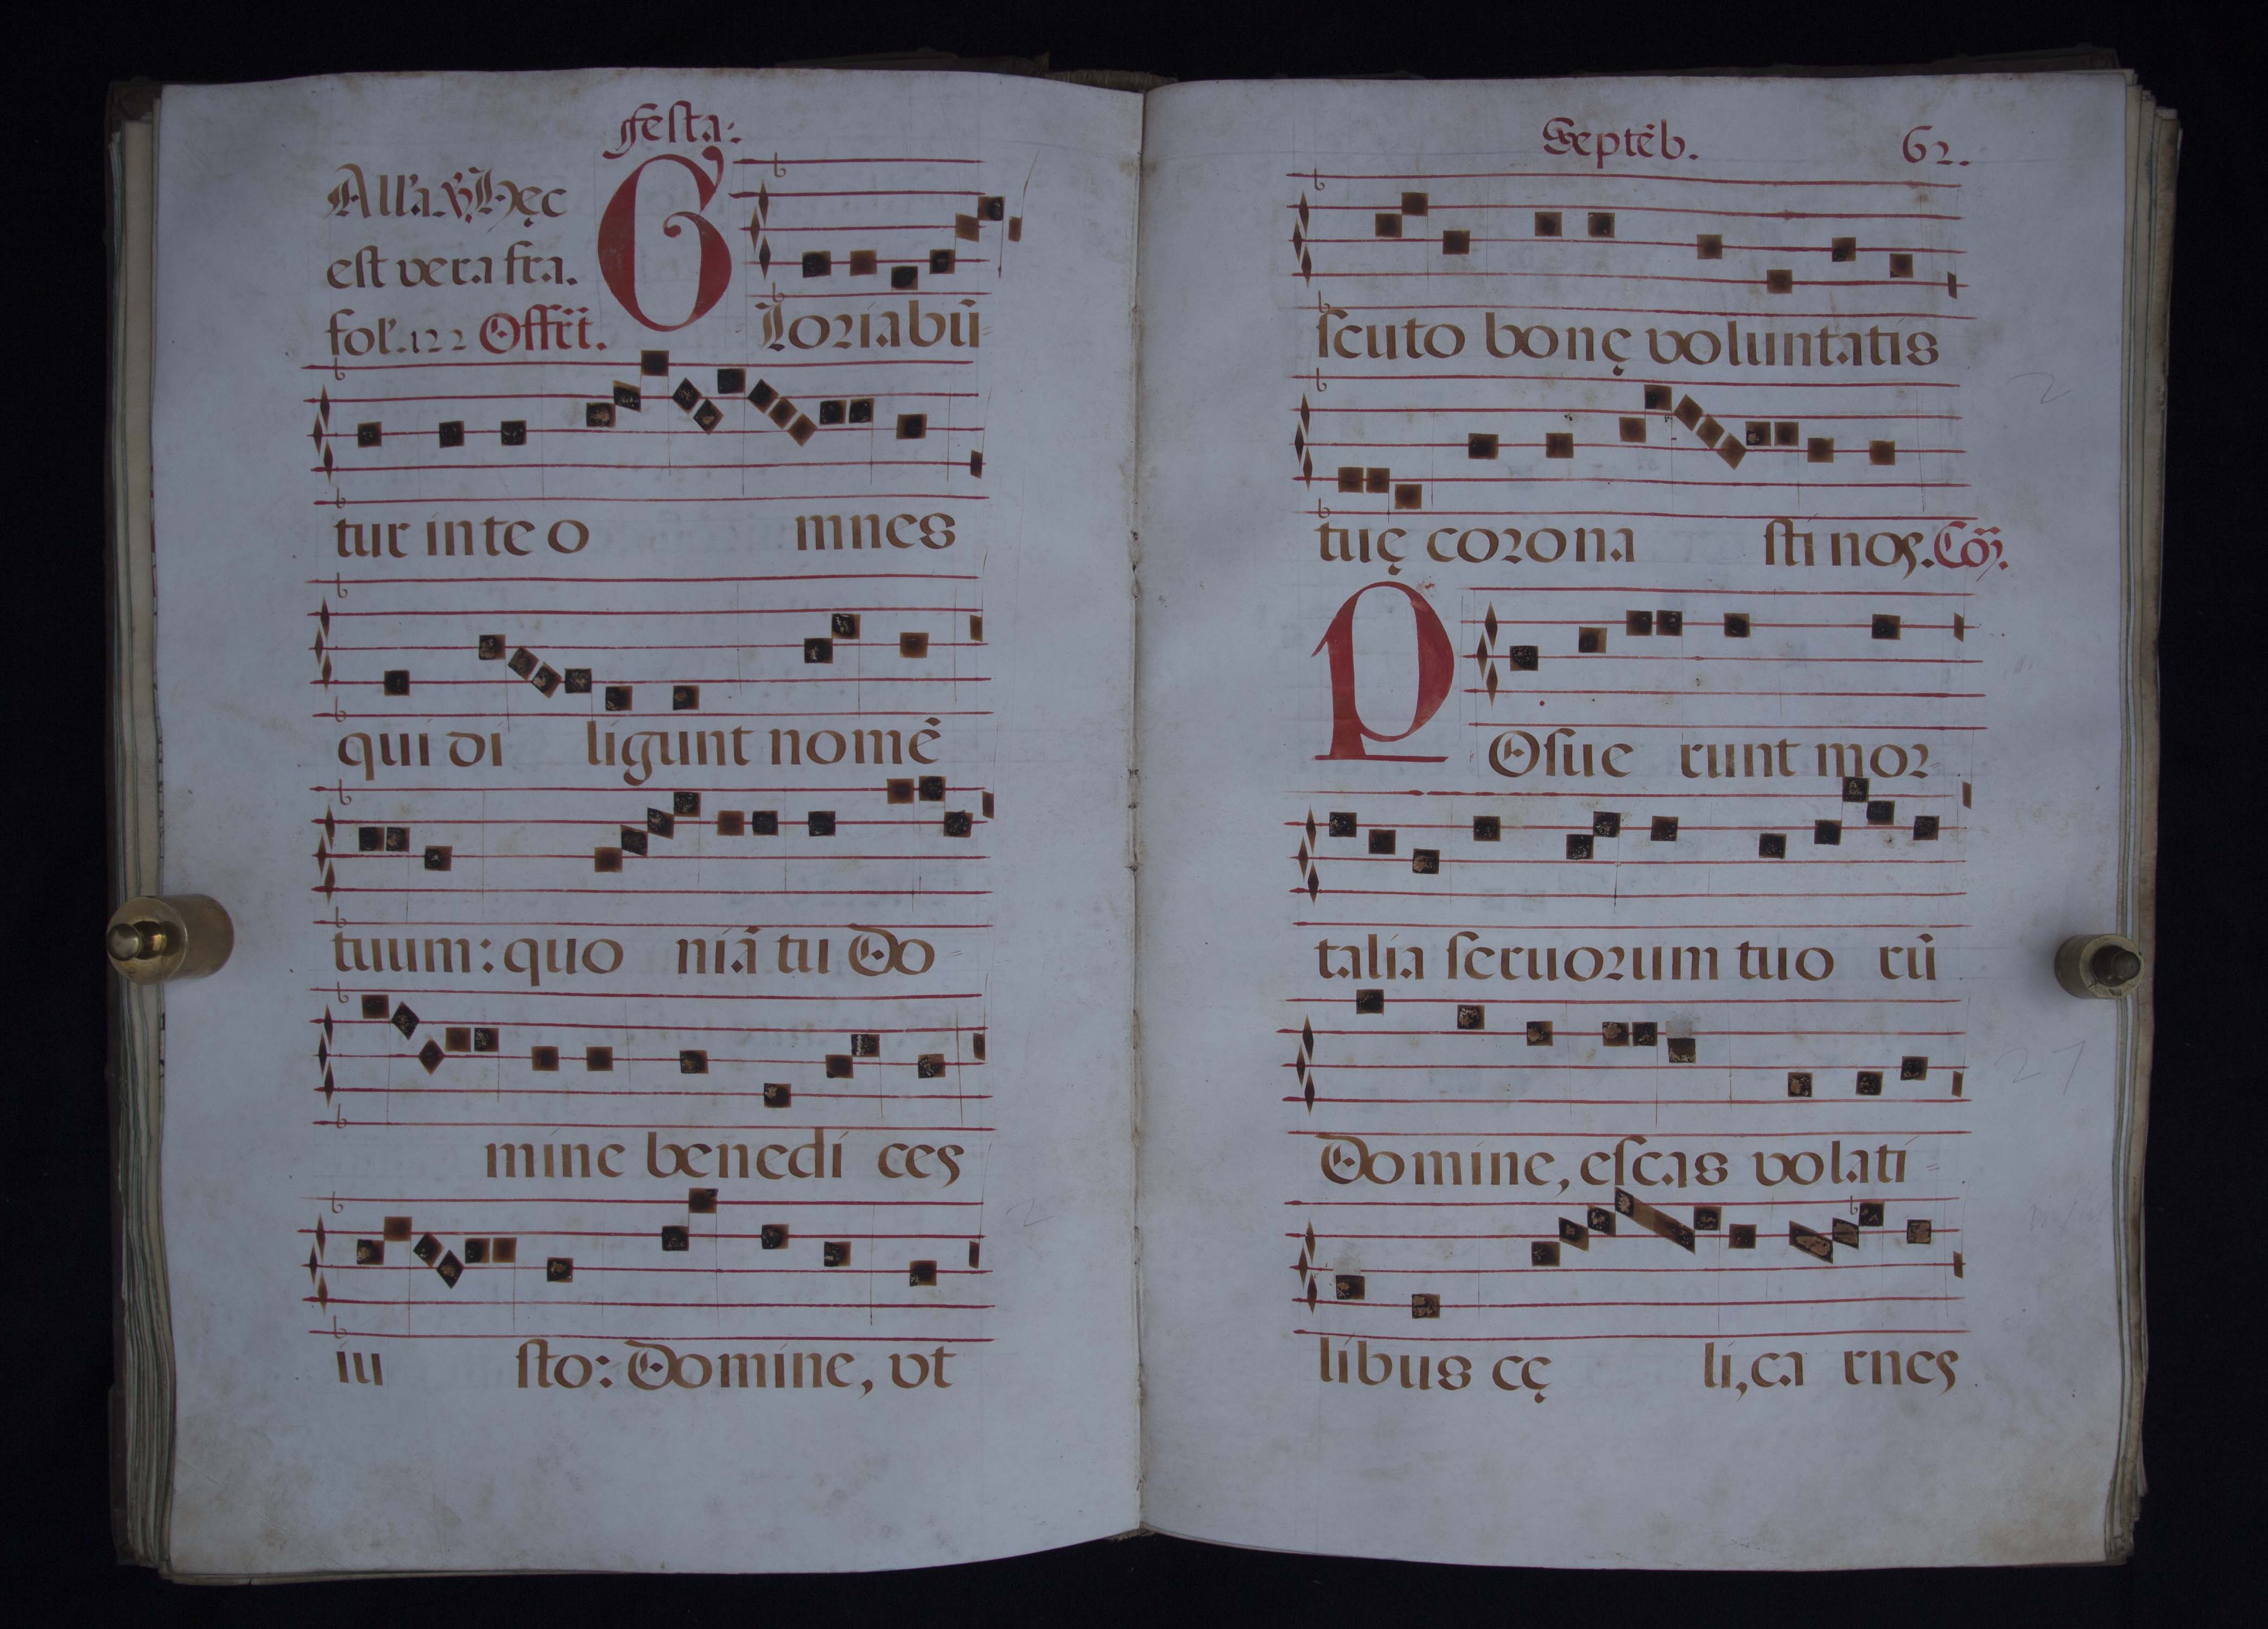 Festa:
All'a. ℣. Hęc
est vera fra.
fol'. 122 Offert̃.
GLoriabũ
tur in te o mnes
qui di ligunt nomẽ
tuum: quo niã tu Do
mine benedi ces
iu sto: Domine, vt
Septẽb. 62.
scuto bonę voluntatis
tuę corona sti nos. Cõ.
POsue runt mor
talia seruorum tuo rũ
Domine, escas volati
libus cę li, ca rnes